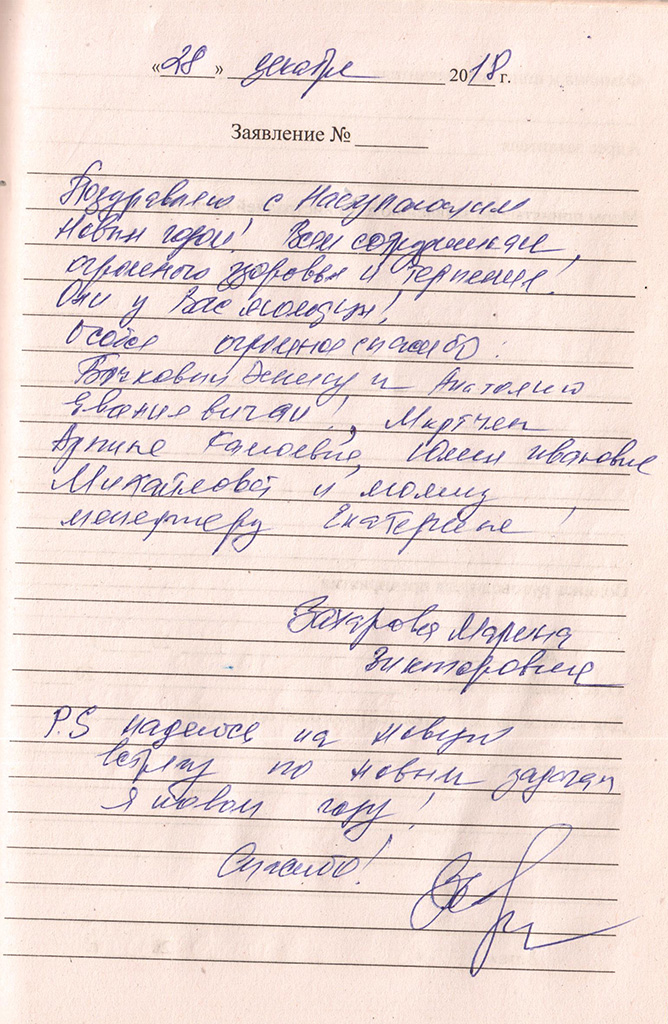 «28» декабря 2018 г.
Заявление №
Поздравляю с Наступающим
Новым годом! Всем сотрудникам
огромного здоровья и терпения!
Они у Вас молодцы!
Особое огромное спасибо:
Бычковым Денису и Анатолию
Евгениевичам!, Мкртчян
Арпине Камоевне, Юлии Ивановне
Михайловой и моему
менеджеру Екатерине!
Захарова Марина
Викторовна
P.S надеюсь на новую
встречу по новым задачам
в новом году!
Спасибо!